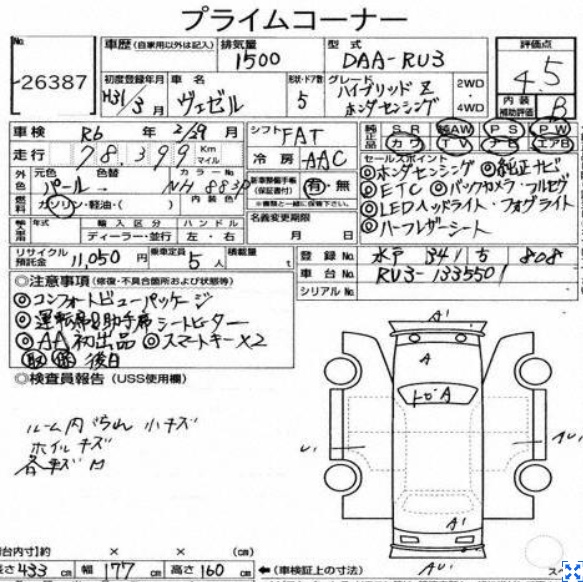 プライムコーナー
No.
26387
車歴(自家用以外は記入) 排気量 型式
1500 DAA-RU3
評価点
4.5
内装補助評価 B
初度登録年月 車名 形状・ドア数 グレード 2WD・4WD
H31/3月 ヴェゼル 5 ハイブリッドZ ホンダセンシング
車検 R6年 2/29月 シフト FAT
純正品 SR AW PS PW
カワ TV ナビ エアB
走行 78,399 Km マイル 冷房 AAC
セールスポイント
◎ホンダセンシング ◎純正ナビ
◎ETC ◎バックカメラ・フルセグ
◎LEDヘッドライト・フォグライト
◎ハーフレザーシート
外色 元色 色替 カラーNo.
パール NH883P
新車整備手帳(保証書付) 有・無
※書類と一緒に保管下さい。
燃料 ガソリン・軽油・( ) 内装色
名義変更期限
月 日
輸入車用 年式 輸入区分 ハンドル
ディーラー・並行 左・右
リサイクル預託金 11,050円 乗車定員 5人 積載量 t
登録No. 水戸 341 ち 808
車台No. RU3-1335501
シリアルNo.
◎注意事項(修復・不具合箇所および状態等)
◎コンフォートビューパッケージ
◎運転席&助手席シートヒーター
◎AA初出品 ◎スマートキー×2
取 後日
◎検査員報告(USS使用欄)
小キズ
ホイルキズ
A'
A
トビA
U'
A'
AU'
(台内寸)約 × × (cm)
長さ 433 cm 幅 177 cm 高さ 160 cm ←(車検証上の寸法)